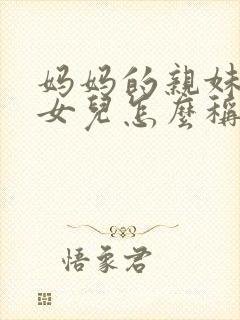 妈妈的親妹
女兒怎麼稱
悟象君